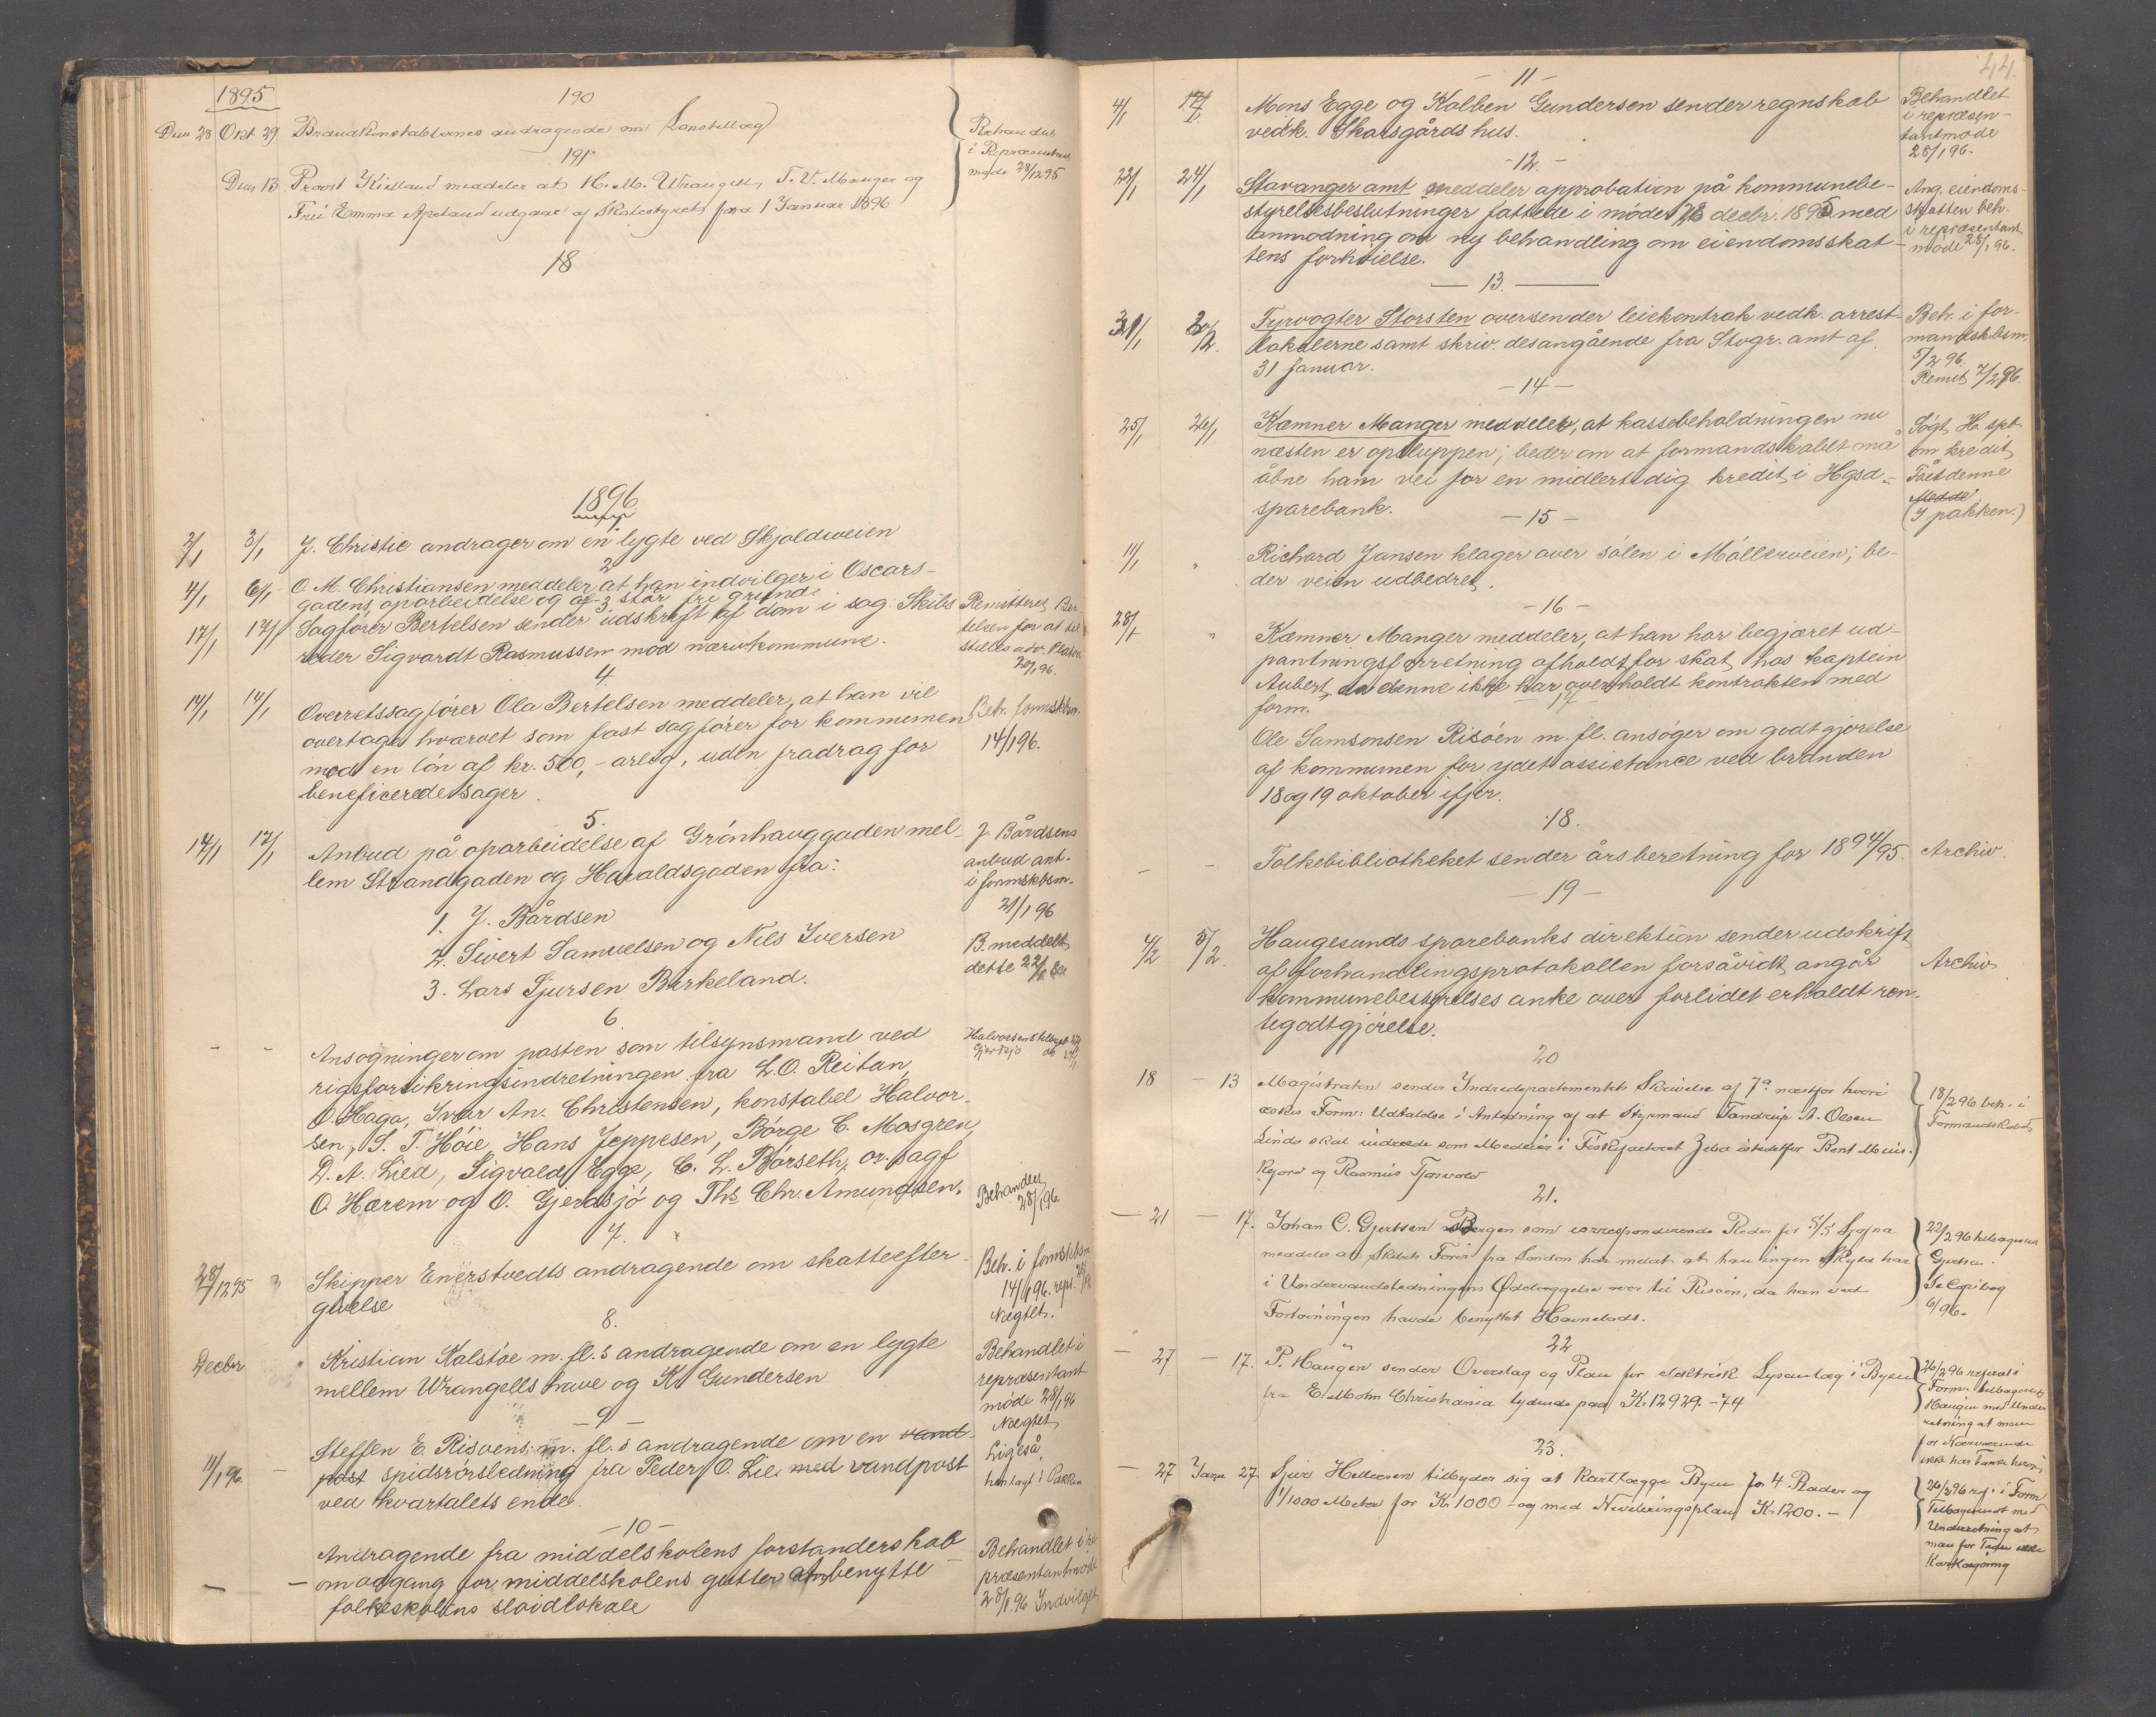 1895
190
Decr 28 Okt 29 Brandkonstablernes andragende om Lønstillæg
Behandlet
i Repræsentant
møde 28/12 95
191
Decr 13 Provst Kielland meddeler at H. M. Wrangell, T. V. Manger og
Frii Emma Apeland udgaar af Skolestyret fra 1 Januar 1896
18
1896
2/1 3/1 J. Christie andrager om en lygte ved Skjoldveien
2
4/1 6/1 O. M. Christiansen meddeler at han indvilger i Oscars-
gadens oparbeidelse og afstår fri grund.
3
17/1 17/1 Sagfører Bertelsen sender udskrift af dom i sag: Skibs
reder Sigvardt Rasmussen mod nærv. kommune.
Remitteret Ber-
telsen for at til
stilles adv.
20/1 96.
4.
14/1 14/1 Overretssagfører Ola Bertelsen meddeler, at han vil
overtage hvervet som fast sagfører for kommunen
mod en løn af kr. 500,- årlig, uden fradrag for
beneficerede sager.
Beh. formskbm.
14/1 96.
5.
14/1 17/1 Anbud på oparbeidelse af Grønhauggaden mel-
lem Strandgaden og Haraldsgaden fra:
1. J. Bårdsen
2. Sivert Samuelsen og Nils Iversen
3. Lars Sjursen Birkeland.
J. Bårdsens
anbud ant.
i formskbsm.
21/1 96
B. meddelt
dette 22/1
6.
- - Ansøgninger om posten som tilsynsmand ved
rigsforsikringsindretningen fra L. O. Reitan,
O. Haga, Ivar An. Christensen, konstabel Halvor-
sen, S. T. Høie, Hans Jeppesen, Børge C. Mosgren,
D. A. Lied, Sigvald Egge, C. L. Børseth, or. sagf
O. Hærem og O. Gjerdsjø og Ths. Chr. Amundsen.
Behandlet
28/1 96.
7.
28/12 95 " Skipper Enerstvedts andragende om skatteefter-
givelse
Beh. i formskbsm
14/1 96. repr. 28/1
Nægtet.
8.
Decbr " Kristian Kalstøe m. fl.s andragende om en lygte
mellem Wrangells have og K. Gundersen
Behandlet i
repræsentant
møde 28/1 96
Nægtet
- 9 -
11/1 96. - Steffen E. Risøens m. fl.s andragende om en vand-
post spidsrørsledning fra Peder O. Lie med vandpost
ved kvartalets ende.
Ligeså,
henlagt i Pakken
- 10 -
- - Andragende fra middelskolens forstanderskab
om adgang for middelskolens gutter at benytte
folkeskolens sløidlokale
Behandlet i re
præsentantmøde
28/1. 96 Indvilget
44.
- 11 -
4/1 Mons Egge og Kolben Gundersen sender regnskab
vedk. Skarsgårds hus.
Behandlet
i repræsen-
tantmøde
28/1 96.
- 12. -
22/1 24/1 Stavanger amt meddeler approbation på kommunebe-
styrelsesbeslutninger fattede i møde 28 decbr. 1895 med
anmodning om ny behandling om eiendomsskat-
tens forhøielse.
Ang. eiendoms-
skatten beh.
i repræsentant
møde 28/1 96.
- 13. -
31/1 Fyrvogter Storsten oversender leiekontrak vedk. arrest-
lokalerne samt skriv. desangående fra Stvgr. amt af
31 januar.
Beh. i for-
mandskbsm.
5/2 96.
Remit. 7/2 96.
- 14 -
25/1 26/1 Kæmner Manger meddeler, at kassebeholdningen nu
næsten er opsluppen; beder om at formandskabet må
åbne ham vei for en midlertidig kredit i Hgsd.
sparebank.
Søgt H. spb.
om kredit
Fået denne
Medde
(I pakken.)
- 15 -
11/1 " Richard Jansen klager over sølen i Møllerveien; be-
der veien udbedret.
- 16 -
28/1 " Kæmner Manger meddeler, at han har begjæret ud-
pantningsforretning afholdt for skat hos kaptein
Aubert, da denne ikke har overholdt kontrakten med
form.
17
Ole Samsonsen Risøen m. fl. ansøger om godtgjørelse
af kommunen for ydet assistance ved branden
18 og 19 oktober ifjor.
18.
- - Folkebibliotheket sender årsberetning for 1894/95. Archiv.
- 19 -
4/2 5/2. Haugesunds sparebanks direktion sender udskrift
af forhandlingsprotokollen forsåvidt angår
kommunebestyrelses anke over forlidet erholdt ren-
tegodtgjørelse.
Archiv
20
18 - 13 Magistraten sender Indredepartementets Skrivelse af 7de næstfor hvori
æskes Form: Udtalelse i Anledning af at Styrmand Tandrup A. Olsen
Linds skal indtræde som Medeier i Fiskefartøiet Zeba istedetfor Bent
og Rasmus
18/2 96 beh. i
Formandskabet
21.
- 21 - 17. Johan C. Gjertsen Bergen som korresponderende Reder for S/S Sjofna
meddeler at Skibets Fører fra London har meldt at han ingen Skyld har
i Undervandsledningens Ødelæggelse over til Risøen, da han ved
Fortøiningen havde benyttet Havnelods.
22/2 96 tilbagesen
Gjertsen.
Se Copibog
6/96.
22
- 27 - 17. P. Haugen sender Overslag og Plan for elektrisk Lysanlæg i Byen
fra E. Mohn Christiania lydende paa K. 12929.-74
26/2 96 referat i
Form. tilbagesendt
Haugen med Under
retning at man
for Nærværende
ikke har Tanke herom
23.
- 27 Janu 27. Sjur Helleesen tilbyder sig at kartlægge Byen for 4 Blader og
1/1000 Meter for K. 1000 - og med Nivelleringsplan K. 1200. -
26/2 96 ref. i Form
Tilbagesendt med
Underretning at
man for Tiden ikke